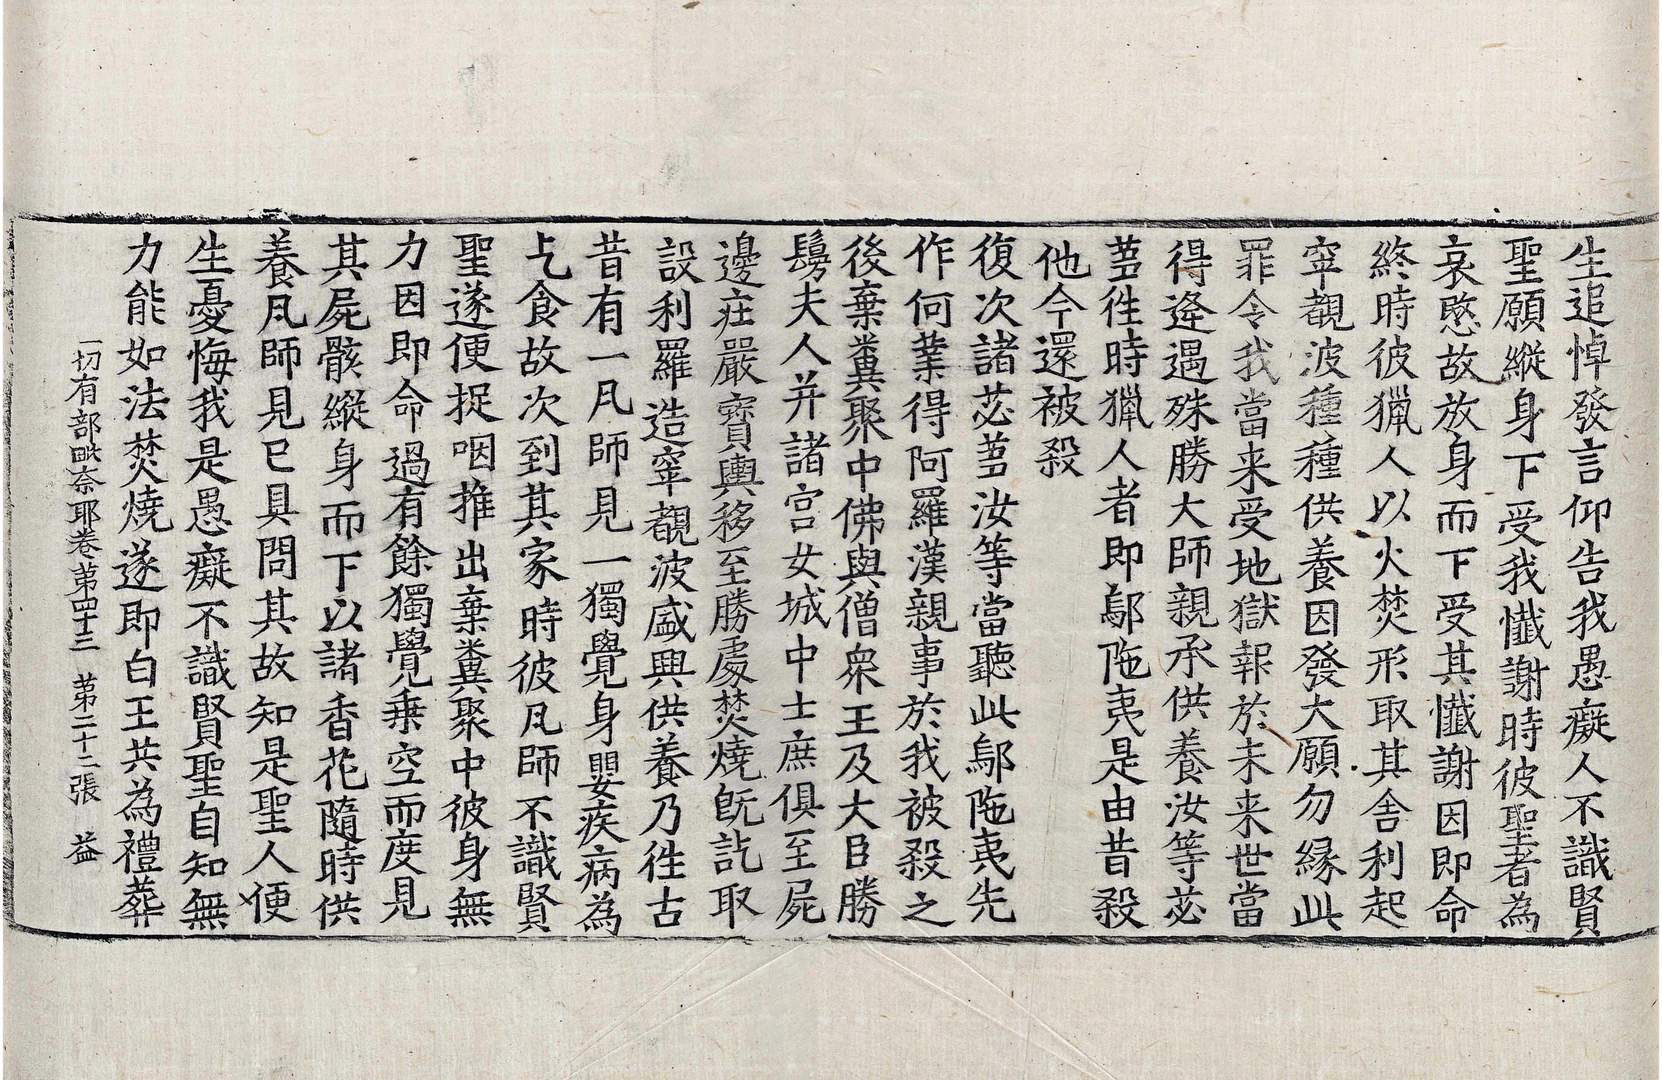 生追悼發言仰告我愚癡人不識賢
聖願縱身下受我懺謝時彼聖者為
哀愍故放身而下受其懺謝因即命
終時彼獵人以火焚形取其舍利起
窣覩波種種供養因發大願勿緣此
罪令我當来受地獄報於未来世當
得逢遇殊勝大師親承供養汝等苾
芻徃時獵人者即鄔陁夷是由昔殺
他今還被殺
復次諸苾芻汝等當聽此鄔陁夷先
作何業得阿羅漢親事於我被殺之
後棄糞聚中佛與僧衆王及大臣勝
鬘夫人并諸宮女城中士庶俱至屍
邊莊嚴寶輿移至勝處焚燒旣訖取
設利羅造窣覩波盛興供養乃徃古
昔有一凡師見一獨覺身嬰疾病為
乞食故次到其家時彼凡師不識賢
聖遂便捉咽推出棄糞聚中彼身無
力因即命過有餘獨覺乗空而度見
其屍骸縱身而下以諸香花隨時供
養凡師見已具問其故知是聖人便
生憂悔我是愚癡不識賢聖自知無
力能如法焚燒遂即白王共為禮葬
一切有部毗奈耶卷第四十三 第二十二張 益